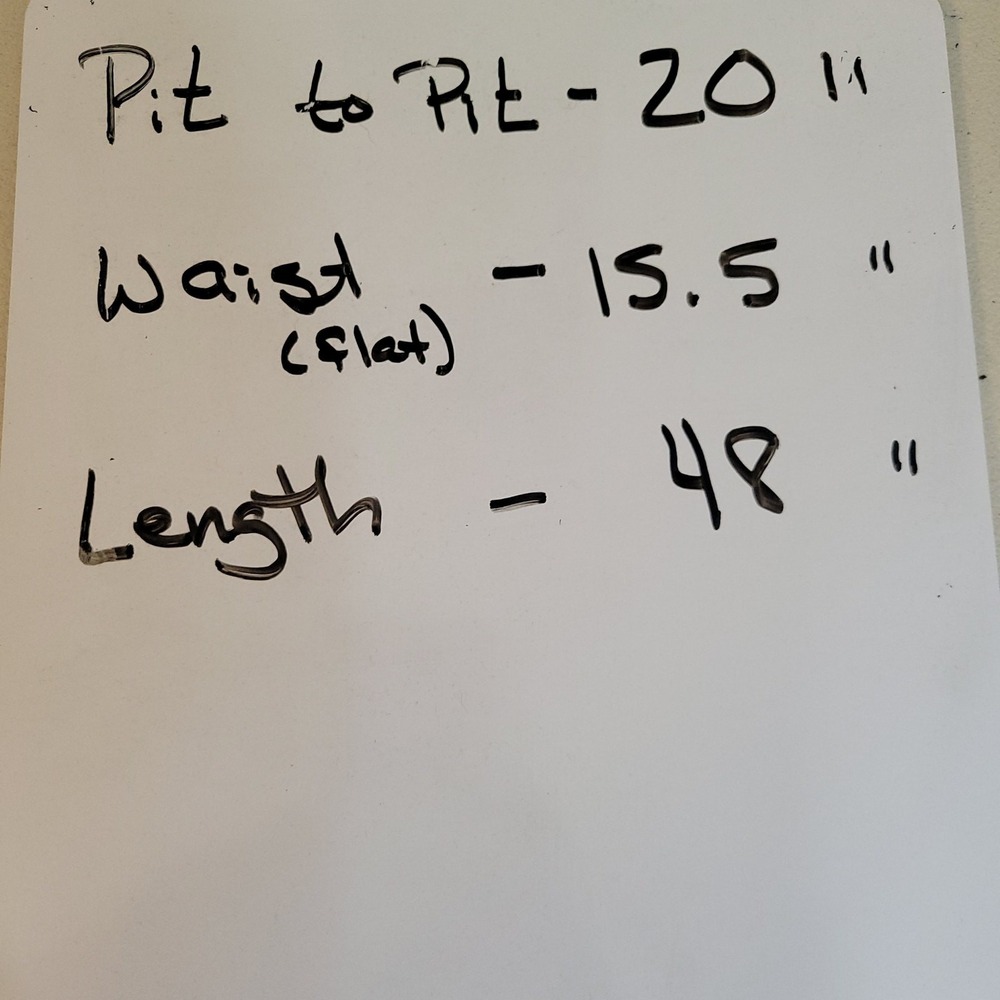 Pit to Pit - 20 "
Waist - 15.5 "
(flat)
Length - 48 "